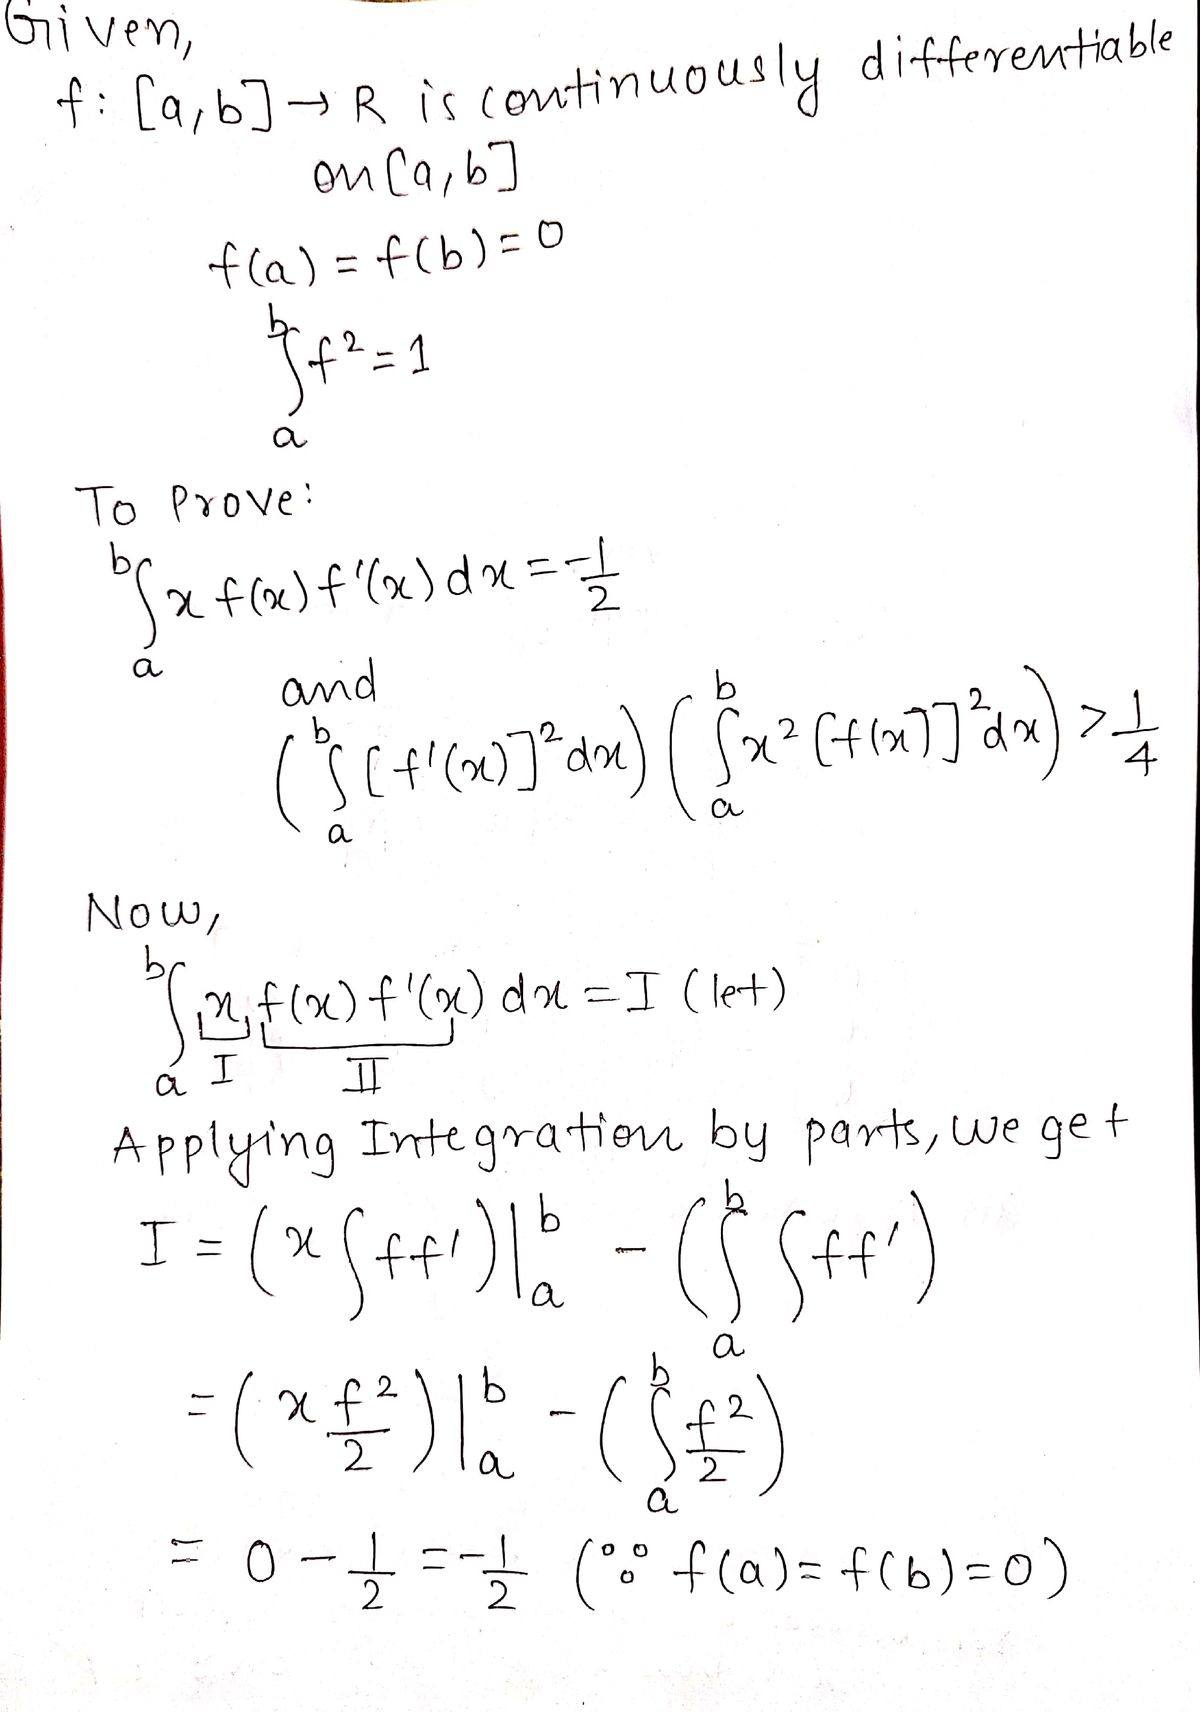 Given,
f: [a,b] → R is continuously differentiable
on [a,b]
f(a) = f(b) = 0
∫_a^b f² = 1
To Prove:
∫_a^b x f(x) f'(x) dx = -1/2
and
(∫_a^b [f'(x)]² dx) (∫_a^b x² [f(x)]² dx) > 1/4
Now,
∫_a^b x, f(x) f'(x) dx = I (let)
I II
Applying Integration by parts, we get
I = (x ∫ff')|_a^b - (∫_a^b ∫ff')
= (x f²/2)|_a^b - (∫_a^b f²/2)
= 0 - 1/2 = -1/2 (∵ f(a) = f(b) = 0)